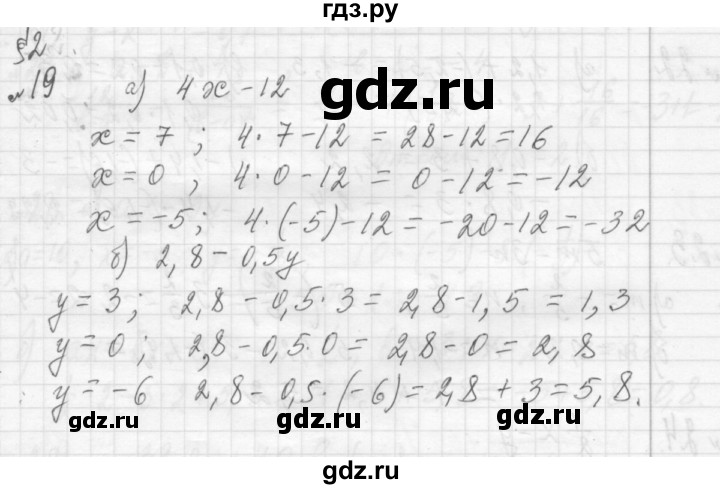 гдз.ру
§2
№19 а) 4x - 12
x = 7 ; 4 · 7 - 12 = 28 - 12 = 16
x = 0 , 4 · 0 - 12 = 0 - 12 = -12
x = -5 ; 4 · (-5) - 12 = -20 - 12 = -32
б) 2,8 - 0,5y
y = 3 ; 2,8 - 0,5 · 3 = 2,8 - 1,5 = 1,3
y = 0 ; 2,8 - 0,5 · 0 = 2,8 - 0 = 2,8
y = -6 2,8 - 0,5 · (-6) = 2,8 + 3 = 5,8.
gdz.ru
gdz.ru
gdz.ru
gdz.ru
gdz.ru